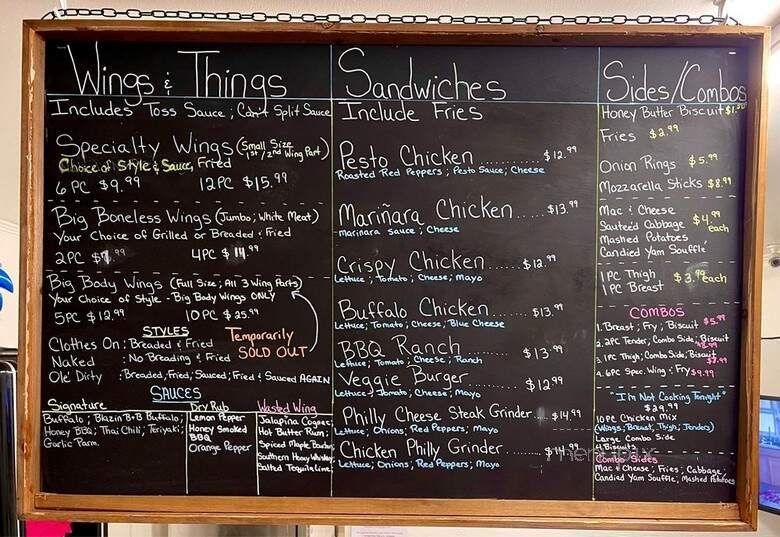 Wings & Things
Includes Toss Sauce; Can't Split Sauce
Specialty Wings (Small Size 1st/2nd Wing Part)
Choice of Style & Sauce, Fried
6 PC $9.99 12 PC $15.99
Big Boneless Wings (Jumbo; White Meat)
Your Choice of Grilled or Breaded & Fried
2PC $7.99 4PC $14.99
Big Body Wings (Full Size; All 3 Wing Parts)
Your Choice of Style - Big Body Wings ONLY
5PC $12.99 10 PC $25.99
STYLES
Temporarily
SOLD OUT
Clothes On: Breaded & Fried
Naked : No Breading & Fried
Ole' Dirty : Breaded, Fried, Sauced, Fried & Sauced AGAIN
SAUCES
Signature
Buffalo; Blazin B-B Buffalo;
Honey BBQ; Thai Chili; Teriyaki;
Garlic Parm.
Dry Rub
Lemon Pepper
Honey Smoked
BBQ
Orange Pepper
Wasted Wing
Jalapina Cognac;
Hot Butter Rum;
Spiced Maple Bourbon;
Southern Honey Whiskey
Salted Tequila Lime
Sandwiches
Include Fries
Pesto Chicken.......... $12.99
Roasted Red Peppers; Pesto Sauce; Cheese
Mariñara Chicken..... $13.99
Marinara Sauce; Cheese
Crispy Chicken......... $12.99
Lettuce; Tomato; Cheese; Mayo
Buffalo Chicken......... $13.99
Lettuce; Tomato; Cheese; Blue Cheese
BBQ Ranch............. $13.99
Lettuce; Tomato; Cheese; Ranch
Veggie Burger.......... $12.99
Lettuce; Tomato; Cheese; Mayo
Philly Cheese Steak Grinder... $14.99
Lettuce; Onions; Red Peppers; Mayo
Chicken Philly Grinder....... $14.99
Lettuce; Onions; Red Peppers; Mayo
Sides/Combos
Honey Butter Biscuit
Fries $2.99
Onion Rings $5.99
Mozzarella Sticks $8.99
Mac & Cheese
Sauteéd Cabbage $4.99 each
Mashed Potatoes
Candied Yam Souffle'
1 PC Thigh
1 PC Breast $3.99 each
COMBOS
1. Breast; Fry; Biscuit $5.99
2. 2PC Tender, Combo Side; Biscuit
3. 1PC Thigh; Combo Side; Biscuit
4. 6PC Spec. Wing; Fry $9.99
"I'm Not Cooking Tonight"
$29.99
10 PC Chicken Mix
(Wings; Breast; Thigh; Tenders)
Large Combo Side
4 Biscuits
Combo Sides
Mac & Cheese; Fries; Cabbage;
Candied Yam Souffle'; Mashed Potatoes